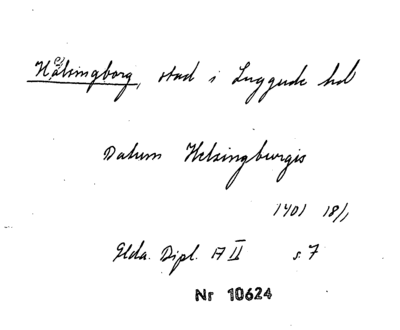 Hälsingborg, stad i Luggude hd
Datum Helsingburgis
1401 18/1
Glda. Dipl. A II s. 7
Nr 10624